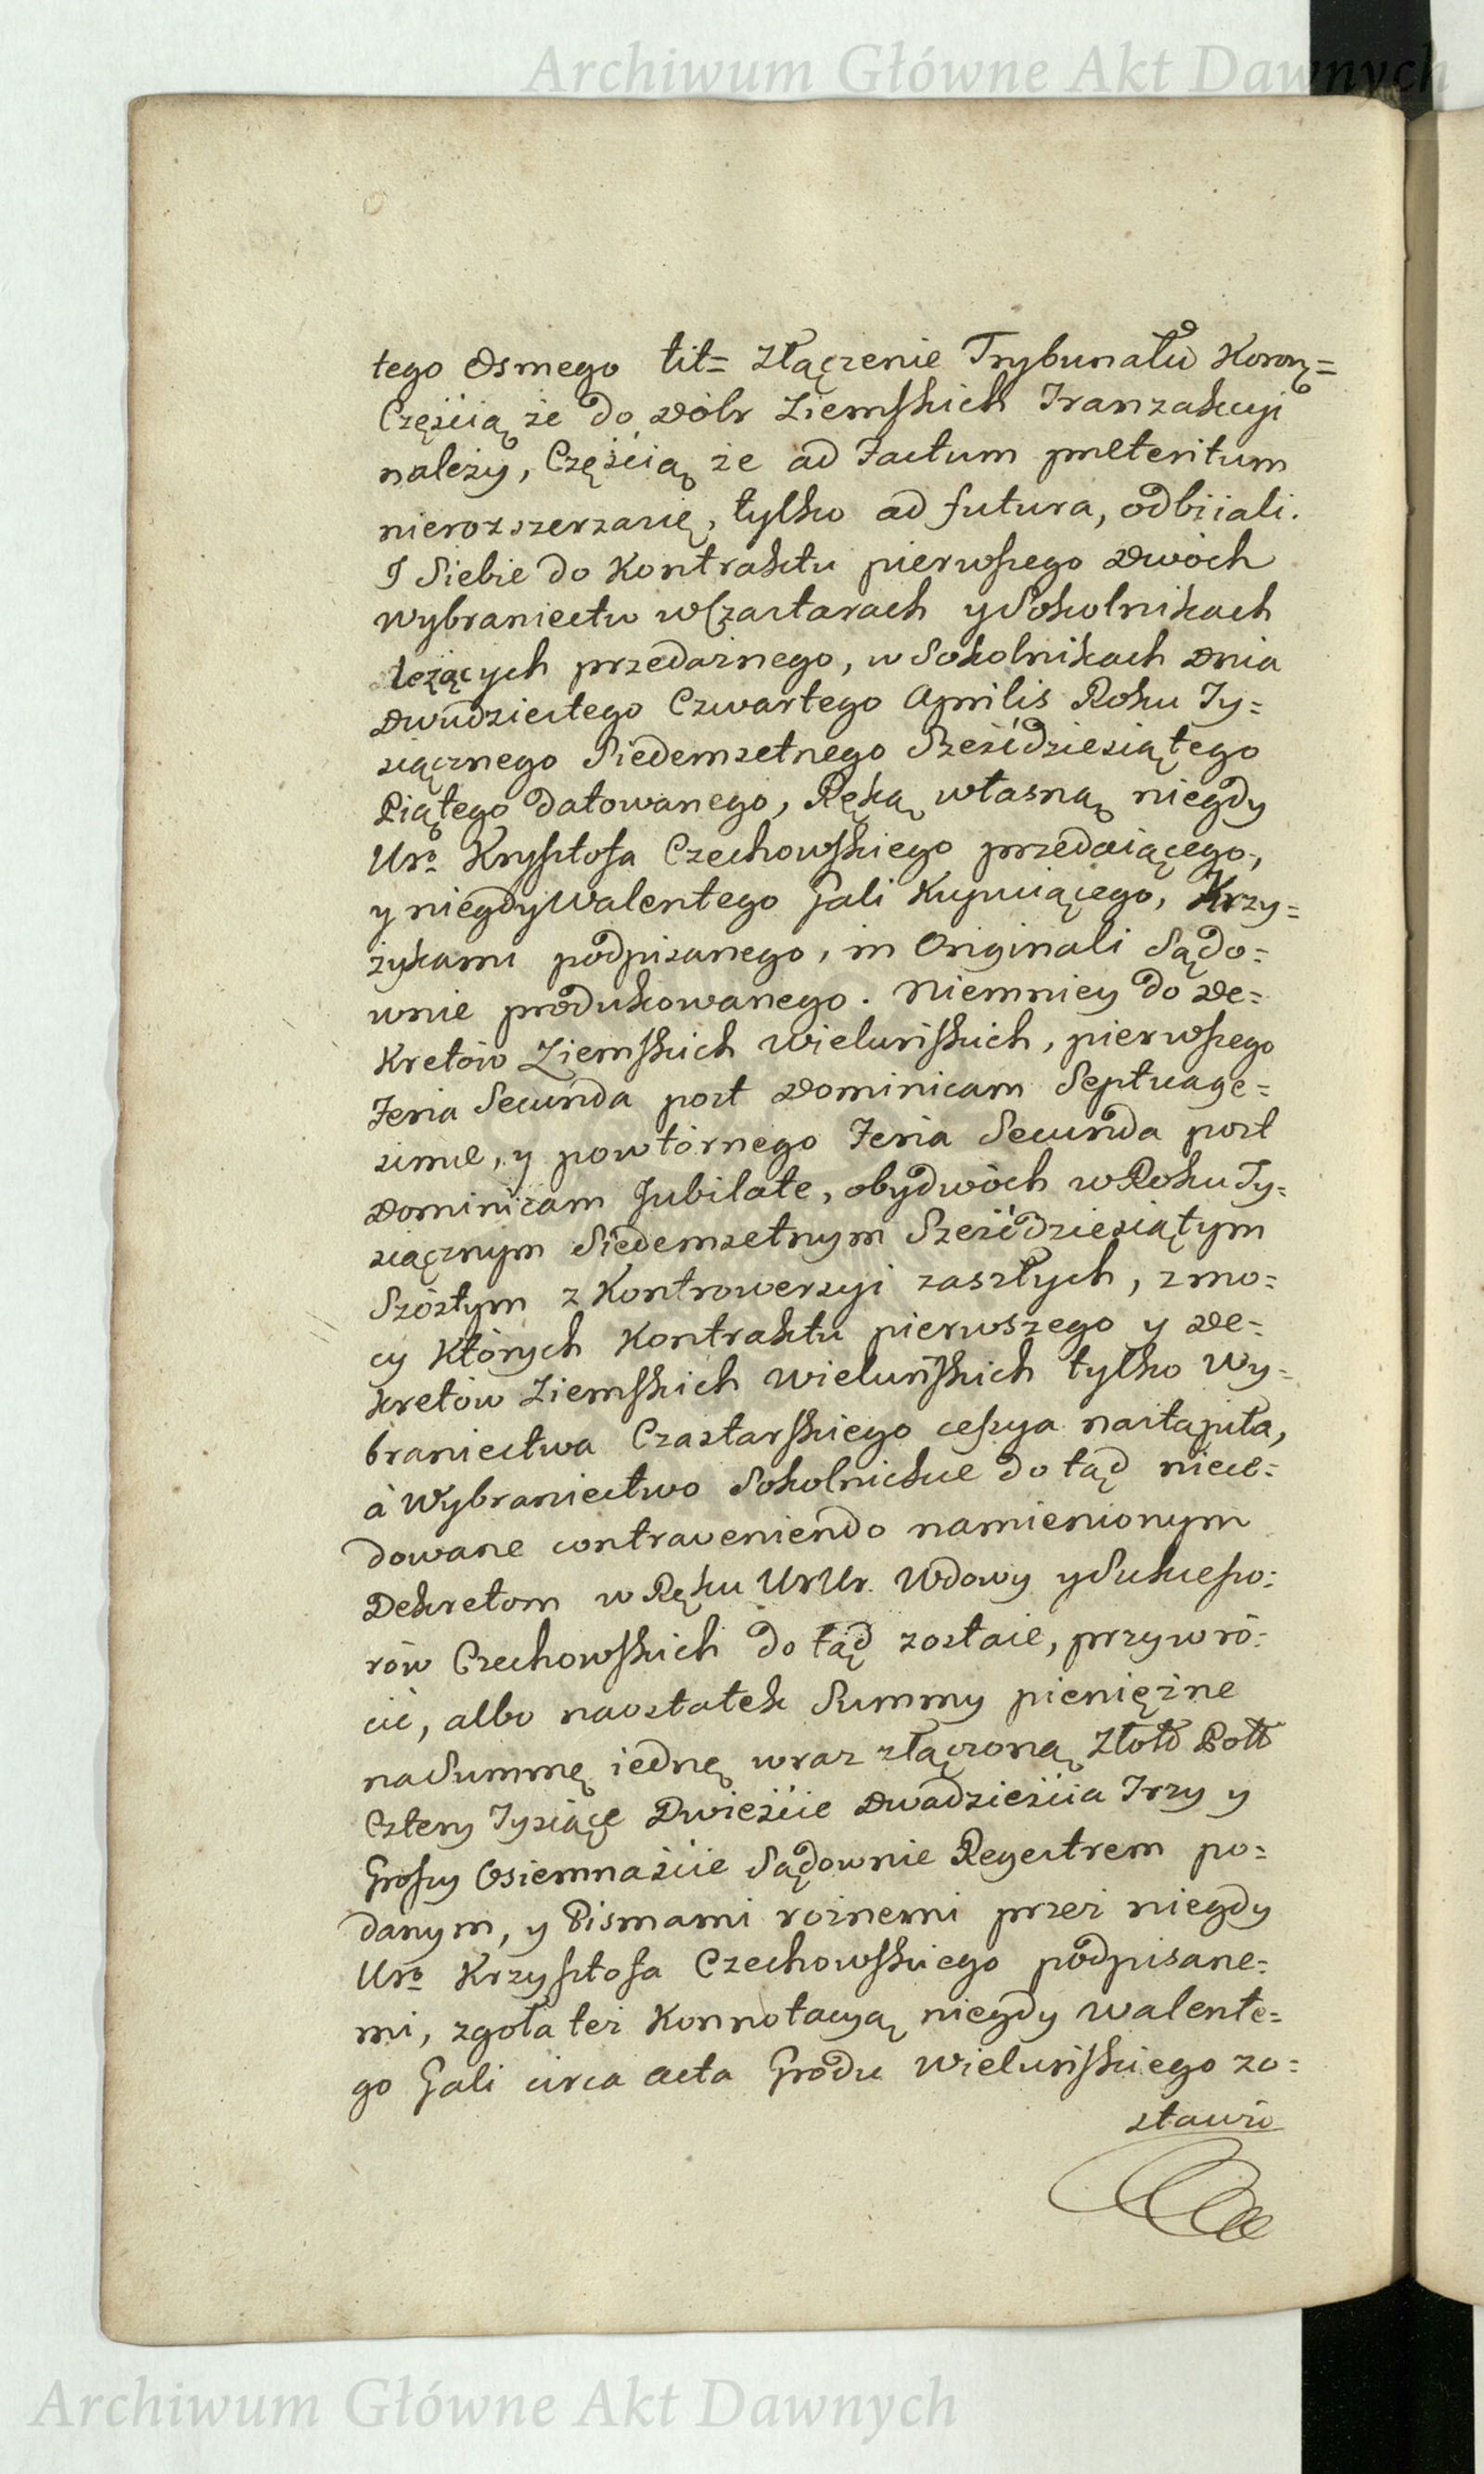 Archiwum Główne Akt Dawnych
tego Osmego tit= Złączenie Trybunałů Koroñ=
Częścią że do Dóbr Ziemskich Tranzakcyi
należy, Częścią że ad Factum preteritum
nierozszerzasię, tylko ad futura, odbiiali.
I Siebie do Kontraktu pierwszego Dwóch
Wybraniectw wCzastarach y Sokolnikach
leżących przedażnego, w Sokolnikach Dnia
Dwudziestego Czwartego Aprilis Roku Ty=
siącznego Siedemsetnego Sześćdziesiątego
Piątego datowanego, Ręką własną niegdy
Uro Krysztofa Czechowskiego przedaiącego,
y niegdy Walentego Gali Kupuiącego, Krzy=
żykami podpisanego, in Originali Sądo=
wnie produkowanego. Niemniey do De=
Kretów Ziemskich Wieluńskich, pierwszego
Feria Secunda post Dominicam Septuage=
sime, y powtórnego Feria Secunda post
Dominicam Jubilate, obydwóch w Roku Ty=
siącznym Siedemsetnym Sześćdziesiątym
Szóstym z Kontrowersyi zaszłych, z mo=
cy Których Kontraktu pierwszego y De=
kretów Ziemskich Wieluńskich tylko Wy=
braniectwa Czastarskiego cessya nastąpiła,
à Wybraniectwo Sokolnickie do tąd niece=
dowane contraveniendo namienionym
Dekretom w Ręku UrUr. Wdowy y Sukcesso=
rów Czechowskich do tąd zostaie, przywró=
cić, albo naostatek Summy pieniężne
na Summę iednę wraz złączoną Złott Poltt
Cztery Tysiące Dwieście Dwadzieścia Trzy y
Groszy Osiemnaście Sądownie Regestrem po=
danym, y Pismami roznemi przez niegdy
Uro Krzysztofa Czechowskiego podpisane=
mi, zgoła też Konnotacyą niegdy Walente=
go Gali circa acta Grodu Wieluńskiego zo=
stawio
Archiwum Główne Akt Dawnych